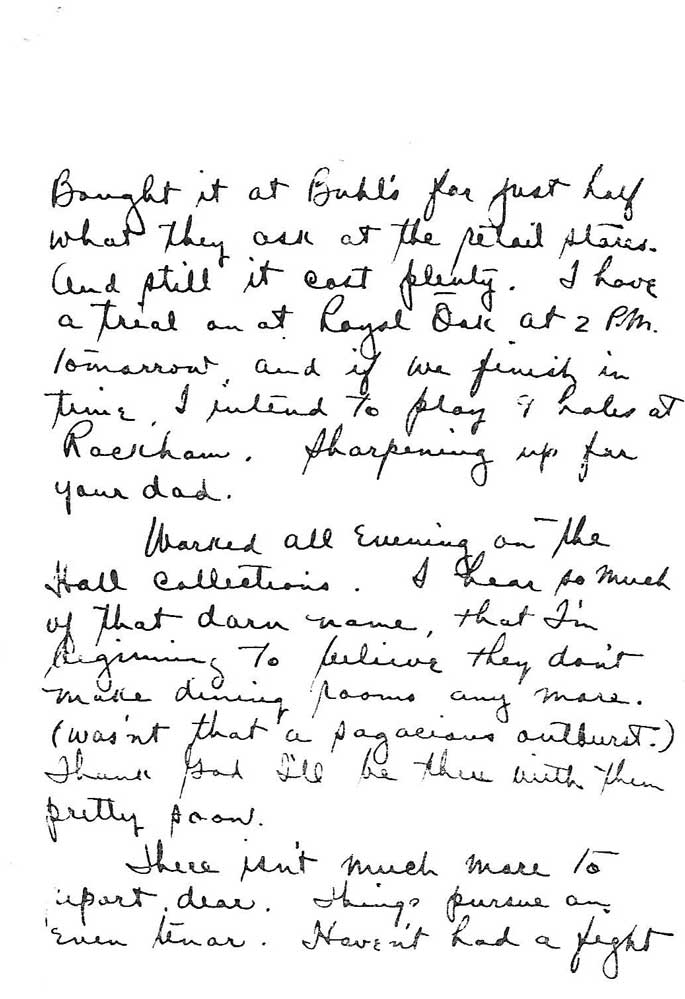 Bought it at Buhl's for just half
what they ask at the retail stores.
And still it cost plenty. I have
a trial on at Royal Oak at 2 P.M.
tomorrow, and if we finish in
time, I intend to play 9 holes at
Rackham. Sharpening up for
your dad.
Worked all evening on the
Hall collections. I hear so much
of that darn name, that I'm
beginning to believe they don't
make dining rooms any more.
(was'nt that a sagacious outburst.)
Thank God I'll be thru with them
pretty soon.
There isn't much more to
report, dear. Things pursue an
even tenor. Haven't had a fight